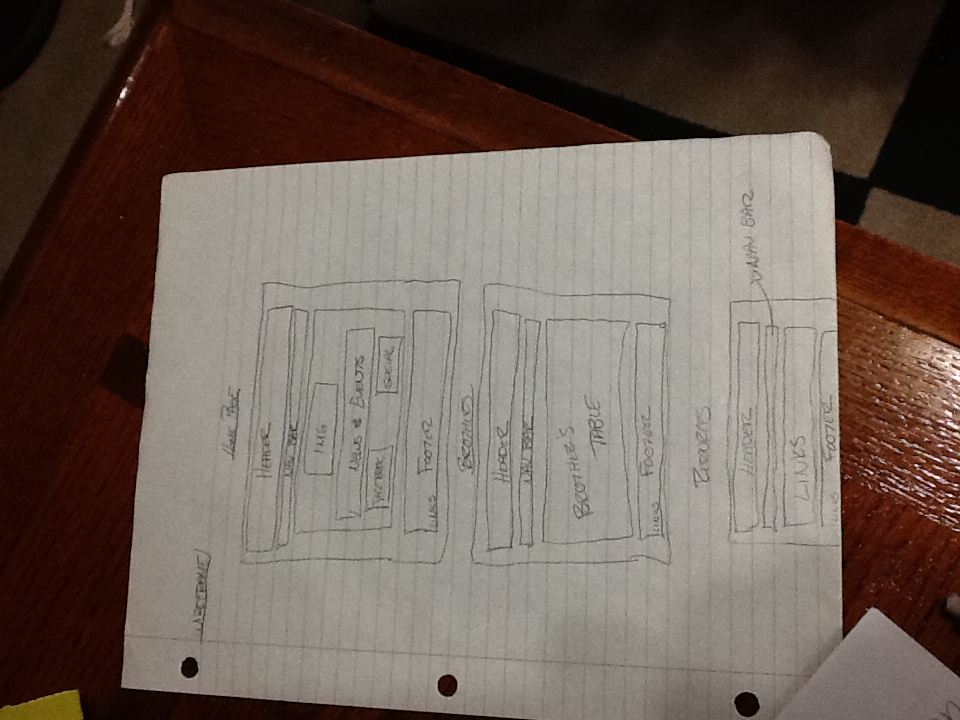 WIREFRAME
HOME PAGE
HEADER
NAV BAR
IMG
NEWS & EVENTS
SOCIAL
LINKS FOOTER
BROTHERS
HEADER
NAV BAR
BROTHER'S
TABLE
LINKS FOOTER
RESOURCES
HEADER
NAV BAR
LINKS
LINKS FOOTER